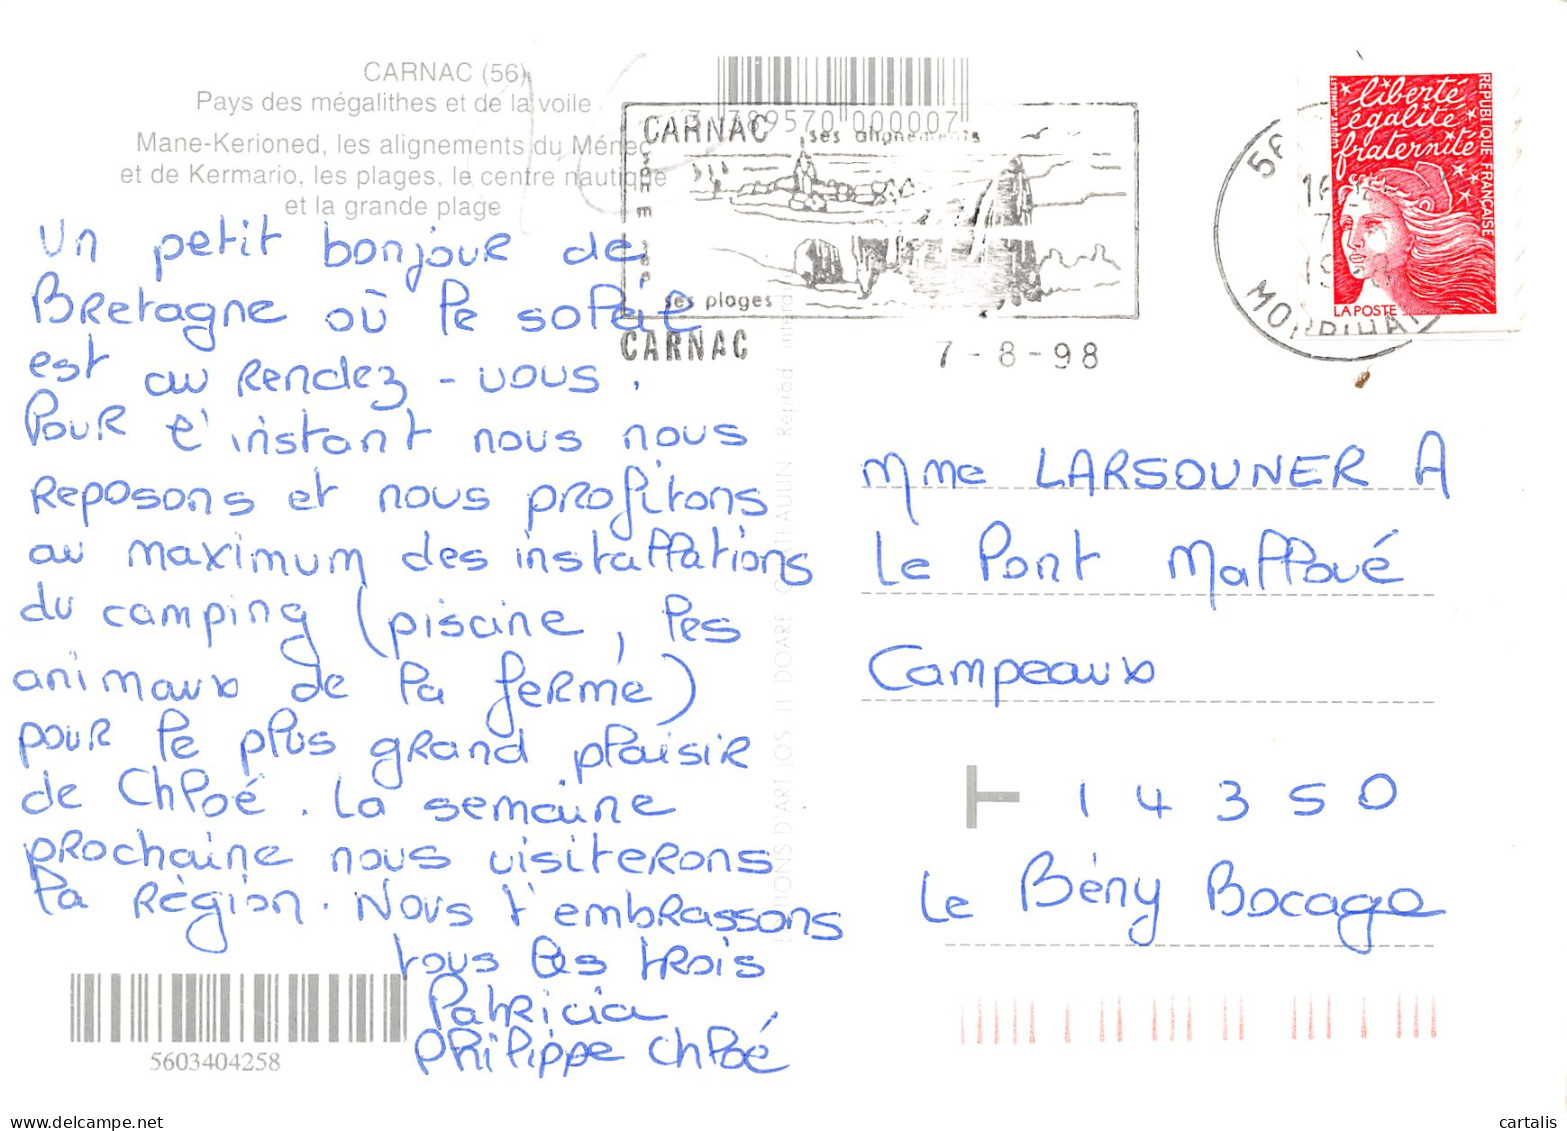 CARNAC (56)
Pays des mégalithes et de la voile
Mane-Kerioned, les alignements du Ménec
et de Kermario, les plages, le centre nautique
et la grande plage
Un petit bonjour de
Bretagne où le soleil
est au rendez-vous.
Pour l'instant nous nous
reposons et nous profitons
au maximum des installations
du camping (piscine, les
animaux de la ferme)
pour le plus grand plaisir
de Chloé. La semaine
prochaine nous visiterons
la région. Nous t'embrassons
tous les trois
Patricia
Philippe Chloé
5603404258
789570 000007
CARNAC ses alignements
ses plages
CARNAC 7-8-98
MORBIHAN
liberté
égalité
fraternité
REPUBLIQUE FRANÇAISE
LA POSTE
D'ART JOS LE DOARE CHATEAULIN Reprod
Mme LARSOUNER A
Le Pont Malloué
Campeaux
14350
Le Bény Bocage
cartalis